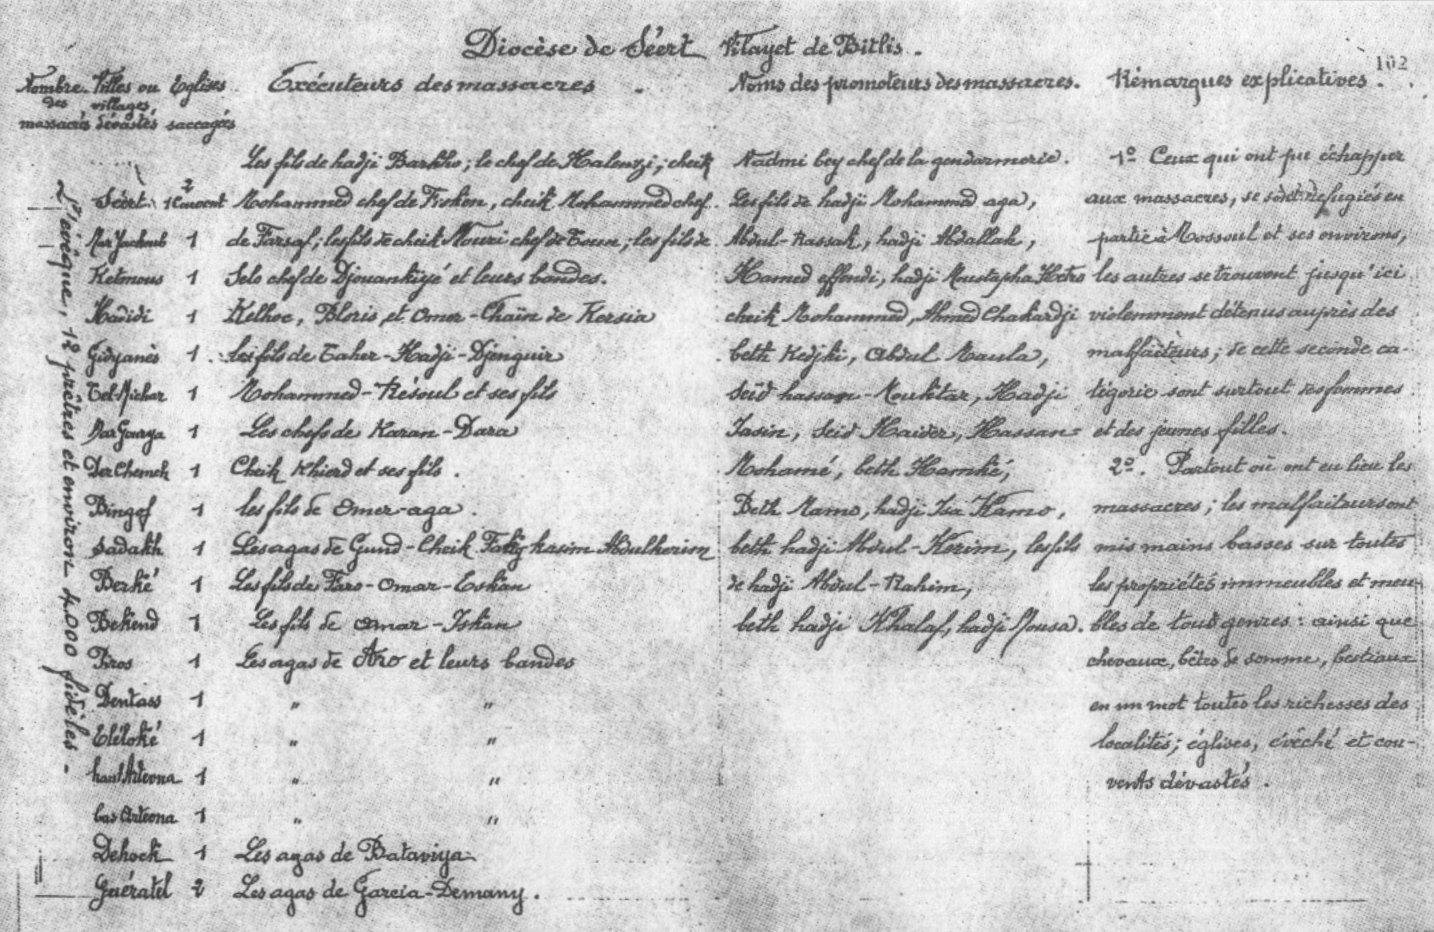 Diocèse de Séert Vilayet de Bitlis.
102
Nombre des massacrés
Villes ou villages dévastés
Eglises saccagées
Exécuteurs des massacres.
Noms des promoteurs des massacres.
Rémarques explicatives.
L'évêque, 12 prêtres et environ 4.000 fidèles.
Les fils de hadji Barkho; le chef de Halenzi; cheik
Séert 2 1 Couvent Mohammed chef de Fiskin, cheik Mohammed chef
Mar Yacoub 1 de Farsaf; les fils de cheik Nouri chef de Toum; les fils de
Ketmous 1 Selo chef de Djouankiyé et leurs bandes.
Hadidi 1 Kelhoc, Bloris et Omer-Chaïn de Kersia
Gidyanès 1 les fils de Taher-Hadji-Djenguir
Tel-Michar 1 Mohammed-Résoul et ses fils
Mar Gourya 1 Les chefs de Karan-Dara
Der Chemch 1 Cheik Khierd et ses fils.
Bingof 1 les fils de Omer-aga.
Sadakh 1 Les agas de Gund-Cheik Fakig kasim Abdulkerim
Berké 1 Les fils de Faro-Omar-Eskan
Bekend 1 Les fils de Omar-Iskan
Piros 1 Les agas de Aro et leurs bandes
Dentass 1 " "
Eléloké 1 " "
haut Artevna 1 " "
bas Artevna 1 " "
Dehock 1 Les agas de Bataviya
Guératel 2 Les agas de Garcia-Demany.
Nadmi bey chef de la gendarmerie.
Les fils de hadji Mohammed aga,
Abdul-Rassak, hadji Abdallah,
Hamed effendi, hadji Mustapha
cheik Mohammed, Ahmed Chakardji
beth Kedjki, Abdul Maula,
Seïd hassan-Mouktar, Hadji
Iasin, Seid Haider, Hassan-
Mohamé, beth Hamké,
Beth Mamo, hadji Isa Hamo,
beth hadji Abdul-Kerim, les fils
de hadji Abdul-Rahim,
beth hadji Khalaf, hadji Mousa.
1º Ceux qui ont pu échapper
aux massacres, se sont refugiés en
partie à Mossoul et ses environs,
les autres se trouvent jusqu'ici
violemment détenus auprès des
malfaiteurs; de cette seconde ca-
tégorie sont surtout des femmes
et des jeunes filles.
2º. Partout où ont eu lieu les
massacres; les malfaiteurs ont
mis mains basses sur toutes
les propriétés immeubles et meu-
bles de tous genres: ainsi que
chevaux, bêtes de somme, bestiaux
en un mot toutes les richesses des
localités; églises, évêché et cou-
vents dévastés.